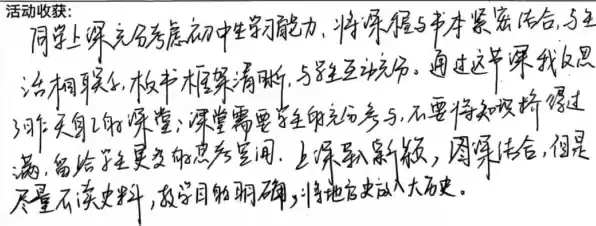 活动收获:
同学上课充分考虑初中生学习能力,将课程与书本紧密结合,与生
活相联系,板书框架清晰,与学生互动充分。通过这节课我反思
了昨天自己的课堂:课堂需要学生的充分参与,不要将知识挤得过
满,留给学生更多的思考空间。上课导入新颖,图课结合,但是
尽量不读史料,教学目的明确,将地方史放入大历史。